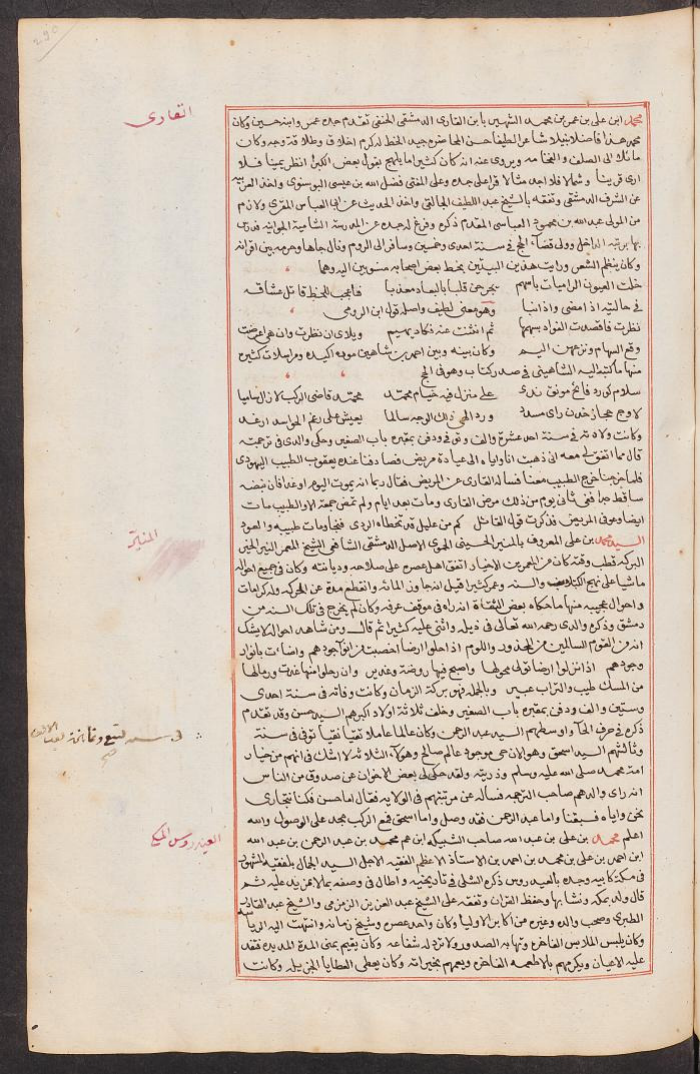 290
القارى
محمد ابن على بن عمر بن محمد الشهير بابن القارى الدمشقى الحنفى تقدم جده عمر وابنه حسين وكان
محمد هذا فاضلا نبيلا شاعرا لطيفا حسن المحاضرة جيد الحفظ له كرم اخلاق وطلاقة وجه وكان
مائلا الى الصلف والفخامه ويروى عنه انه كان كثيرا ما يلهج بقول بعض الكبرا انظر يمينا فلا
ارى قرينا وشمالا فلا اجد مثالا قرأ على جده وعلى المفتى فضل الله بن عيسى البوسنوى واخذ العربيه
عن الشرف الدمشقى وتفقه بالشيخ عبد اللطيف الجالقى واخذ الحديث عن ابى العباس المقرى ولازم
من المولى عبد الله بن محمود العباسى المقدم ذكره وفرغ له جده عن المدرسة الشامية الجوانيه فدرس
بها برتبة الداخل وولى قضاء الحج فى سنة احدى وخمسين وسافر الى الروم ونال جاها وحرمه بين اقرانه
وكان ينظم الشعر ورايت هذين البيتين بخط بعض اصحابه منسوبين اليه وهما
خلت العيون الراميات باسهم يجرحن قلبا بالبعاد معذبا فاعجب للحظ قاتل عشاقه
فى حالتيه اذا مضى واذا نبا وهو معنى لطيف واصله قول ابن الرومى
نظرت فاقصدت الفواد بسهمها ثم انثنت عنه فكاد يهيم ويلاى ان نظرت وان هى اعرضت
وقع السهام ونزعهن اليم وكان بينه وبين احمد بن شاهين موده اكيده ومراسلات كثيره
منها ما كتبه اليه الشاهينى فى صدر كتاب وهو فى الحج
سلام كورد فائح مونق ندى على منزل فيه خيام محمد محمد قاضى الركب لا زال ساميا
لاوج حجاز خدن راى مسدد ورد الحى ذلك الوجه سالما يعيش على رغم الحواسد ارغد
وكانت ولادته فى سنة احد عشرة والف وتوفى ودفن بمقبره باب الصغير وحكى والدى فى ترجمته
قال مما اتفق لى معه انى ذهبت انا واياه الى عيادة مريض فصادفنا عنده يعقوب الطبيب اليهودى
فلما خرجنا خرج الطبيب معنا فساله القارى عن المريض فقال ربما انه يموت اليوم او غدا فان نبضه
ساقط جدا ففى ثانى يوم من ذلك مرض القارى ومات بعد ايام ولم تمض جمعة الا والطبيب مات
ايضا وعوفى المريض فذكرت قول القائل كم من عليل قد تخطاه الردى فنجا ومات طبيبه والعود
المنير
السيد محمد بن على المعروف بالمنير الحسينى الحموى الاصل الدمشقى الشافعى الشيخ المعمر النير الخير
البركه قطب وقته كان من المعمرين الاخيار اتفق اهل عصره على صلاحه وديانته وكان فى جميع احواله
ماشيا على نهج الكتاب والسنه وعمر كثيرا قيل انه جاوز المائه وانقطع مدة عن الحركه وله كرامات
واحوال عجيبه منها ما حكاه بعض الثقاة انه راه فى موقف عرفه وكان لم يخرج فى تلك السنه من
دمشق وذكره والدى رحمه الله تعالى فى ذيله واثنى عليه كثيرا ثم قال ومن شاهد احواله لا يشك
انه من القوم السالمين من المحذور واللوم اذا حلوا ارضا اخصبت من انوا جودهم واضاءت بانوار
وجودهم اذا نزلوا ارضا تولى محولها واصبح فيها روضة وغدير وان رحلوا منها غدت ورمالها
من المسك طيب والتراب عبير وبالجمله فهو بركة الزمان وكانت وفاته فى سنة احدى
وستين والف ودفن بمقبره باب الصغير وخلف ثلاثة اولاد اكبرهم السيد حسن وقد تقدم
ذكره فى حرف الحاء واوسطهم السيد عبد الرحمن وكان عالما عاملا تقيا نقيا توفى فى سنة
فى سنه تسع وثمانين بعد الالف
صح
وثالثهم السيد اسحق وهو الان حى موجود عالم صالح وهوءلاء الثلاثة لا اشك فى انهم من خيار
امة محمد صلى الله عليه وسلم وذريته ولقد حكى لى بعض الاخوان عن صدوق من الناس
انه راى والدهم صاحب الترجمه فساله عن مرتبتهم فى الولايه فقال اما حسن فكنا نتجارى
نحن واياه فسبقنا واما عبد الرحمن فقد وصل واما اسحق فمع الركب مجد على الوصول والله
العيدروس المكى
اعلم محمد بن على بن عبد الله صاحب الشبيكه ابن عم محمد بن عبد الرحمن بن عبد الله
ابن احمد بن على بن محمد بن احمد بن الاستاذ الاعظم الفقيه الاجل السيد الجمال بالفقيه المشهور
فى مكة كابيه وجده بالعيدروس ذكره الشلى فى تاريخيه واطال فى وصفه بما لا مزيد عليه ثم
قال ولد بمكه ونشا بها وحفظ القران وتفقه على الشيخ عبد العزيز الزمزمى والشيخ عبد القادر
الطبرى وصحب والده وغيره من اكابر الاوليا وكان واحد عصره وشيخ زمانه وانتهت اليه الرياسه
وكان يلبس الملابس الفاخره وتهابه الصدور ولا ترد له شفاعه وكان يقيم بمنى المدة المديده فتفد
عليه الاعيان ويكرمهم بالاطعمه الفاخره ويعمهم بخيراته وكان يعطى العطايا الجزيله وكانت